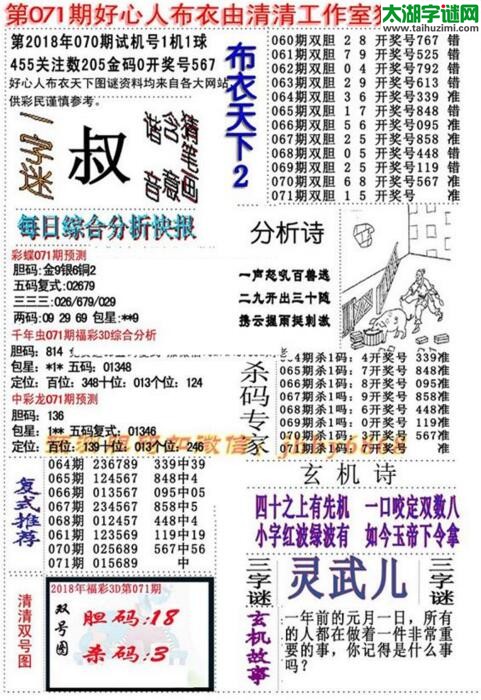 第071期好心人布衣由清清工作室
太湖字谜
www.taihuzimi.com
第2018年070期试机号1机1球
455关注数205金码0开奖号567
好心人布衣天下图谜资料均来自各大网站
供彩民谨慎参考。
一字谜
叔
猜笔画
含意
谐音
布衣天下2
060期双胆 2 8 开奖号767 错
061期双胆 7 9 开奖号525 错
062期双胆 0 4 开奖号792 错
063期双胆 2 9 开奖号613 错
064期双胆 3 6 开奖号339 准
065期双胆 1 7 开奖号848 错
066期双胆 5 6 开奖号095 准
067期双胆 0 5 开奖号858 准
068期双胆 0 5 开奖号448 错
069期双胆 2 5 开奖号119 错
070期双胆 6 8 开奖号567 准
071期双胆 1 5 开奖号 准
每日综合分析快报
彩蝶071期预测
胆码:金9银6铜2
五码复式:02679
三三三:026/679/029
两码:09 29 69 包星:**9
千年虫071期福彩3D综合分析
胆码: 814
包星: *1* 五码: 01348
定位: 百位: 348十位: 013个位: 124
中彩龙071期预测
胆码: 136
包星: 1** 五码复式: 01346
定位: 百位: 139十位: 013个位: 246
分析诗
一声怒吼百兽逃
二九开出三十随
携云握雨挺刺激
杀码专家
064期杀1码: 4开奖号 339准
065期杀1码: 7开奖号 848准
066期杀1码: 7开奖号 095准
067期杀1码: 9开奖号 858准
068期杀1码: 6开奖号 448准
069期杀1码: 0开奖号 119准
070期杀1码: 9开奖号 567准
071期杀1码: 7开奖号 准
复式推荐
064期 236789 339中39
065期 124567 848中4
066期 013567 095中05
067期 234567 858中5
068期 012457 448中4
069期 123569 119中19
070期 025689 567中56
071期 015689 中
玄机诗
四十之上有先机 一口咬定双数八
小字红波绿波有 如今玉帝下令拿
清清双号图
2018年福彩3D第071期
双号图
胆码:18
杀码:3
三字谜
灵武儿
三字谜
玄机故事
一年前的元月一日，所有
的人都在做着一件非常重
要的事，你记得是什么事
吗?